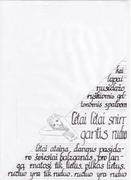 kai
lapai
nusidažo
ryškiomis gel
tonomis spalvom
lėtai lėtai
gantis ruduo
lėtai ateina, dangus pasida
ro šviesiai balzganas, pro lan
gą matosi tik lietus, pilkas lietus.
ruduo yra tik ruduo. ruduo yra ruduo